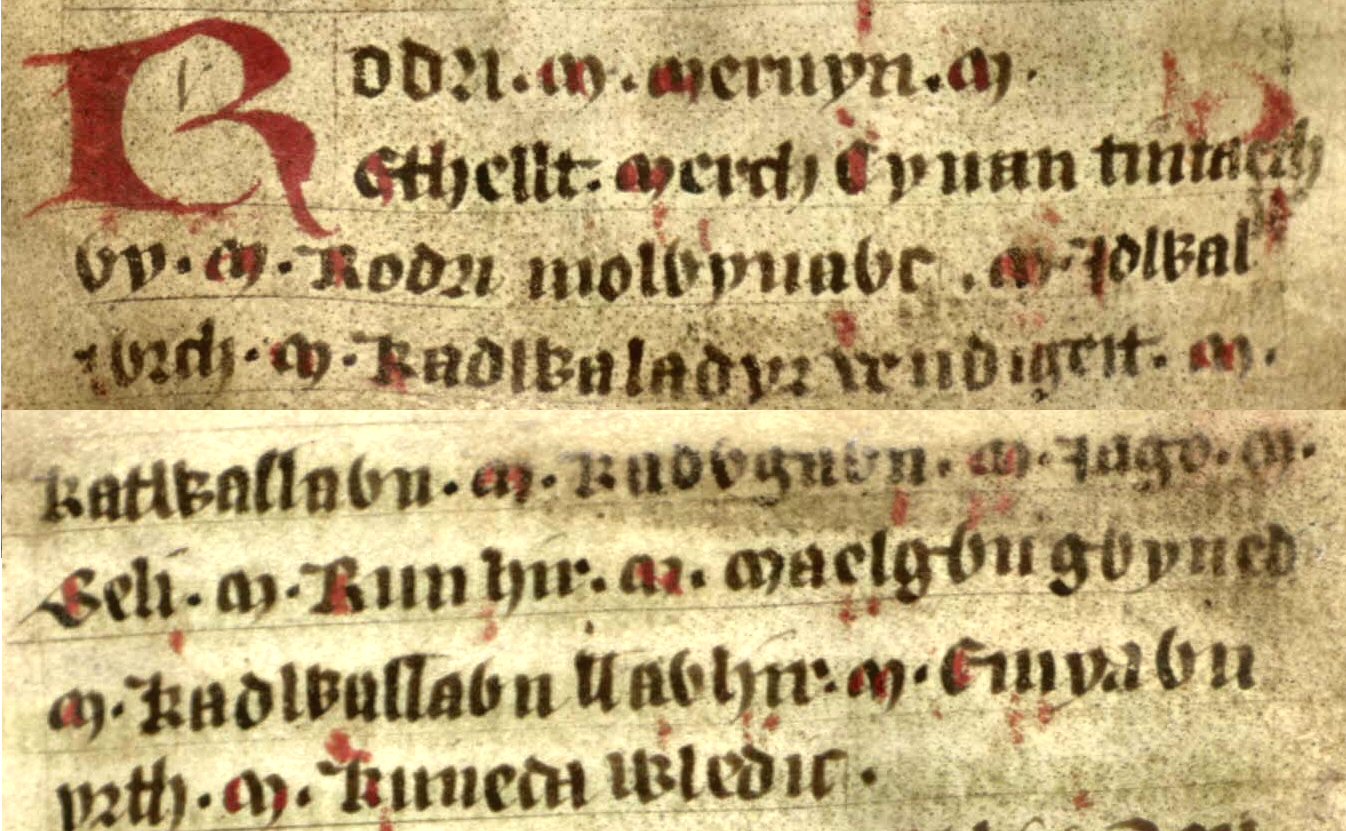 Rodri .m. meruyn .m.
Ethellt. merch Cynan tintaeth
vy .m. Rodri molvynavc .m. Idwal
Ivrch .m. Kadwaladyr vendigeit .m.
katwallavn .m. Kadvgavn .m. Iago .m.
Beli .m. Run hir .m. maelgvn gvyned
.m. Kadwallavn llavhir .m. Einyavn
yrth .m. Kuneda wledic.